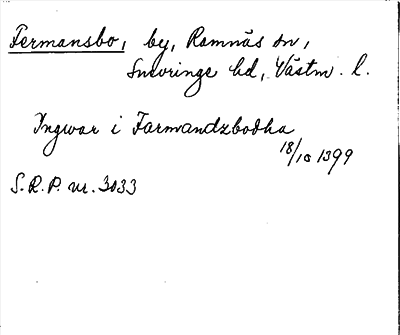 Fermansbo, by, Ramnäs sn,
Snevringe hd, Västm. l.
Ingwar i Farmandzbodha
18/10 1399
S.R.P. nr. 3033